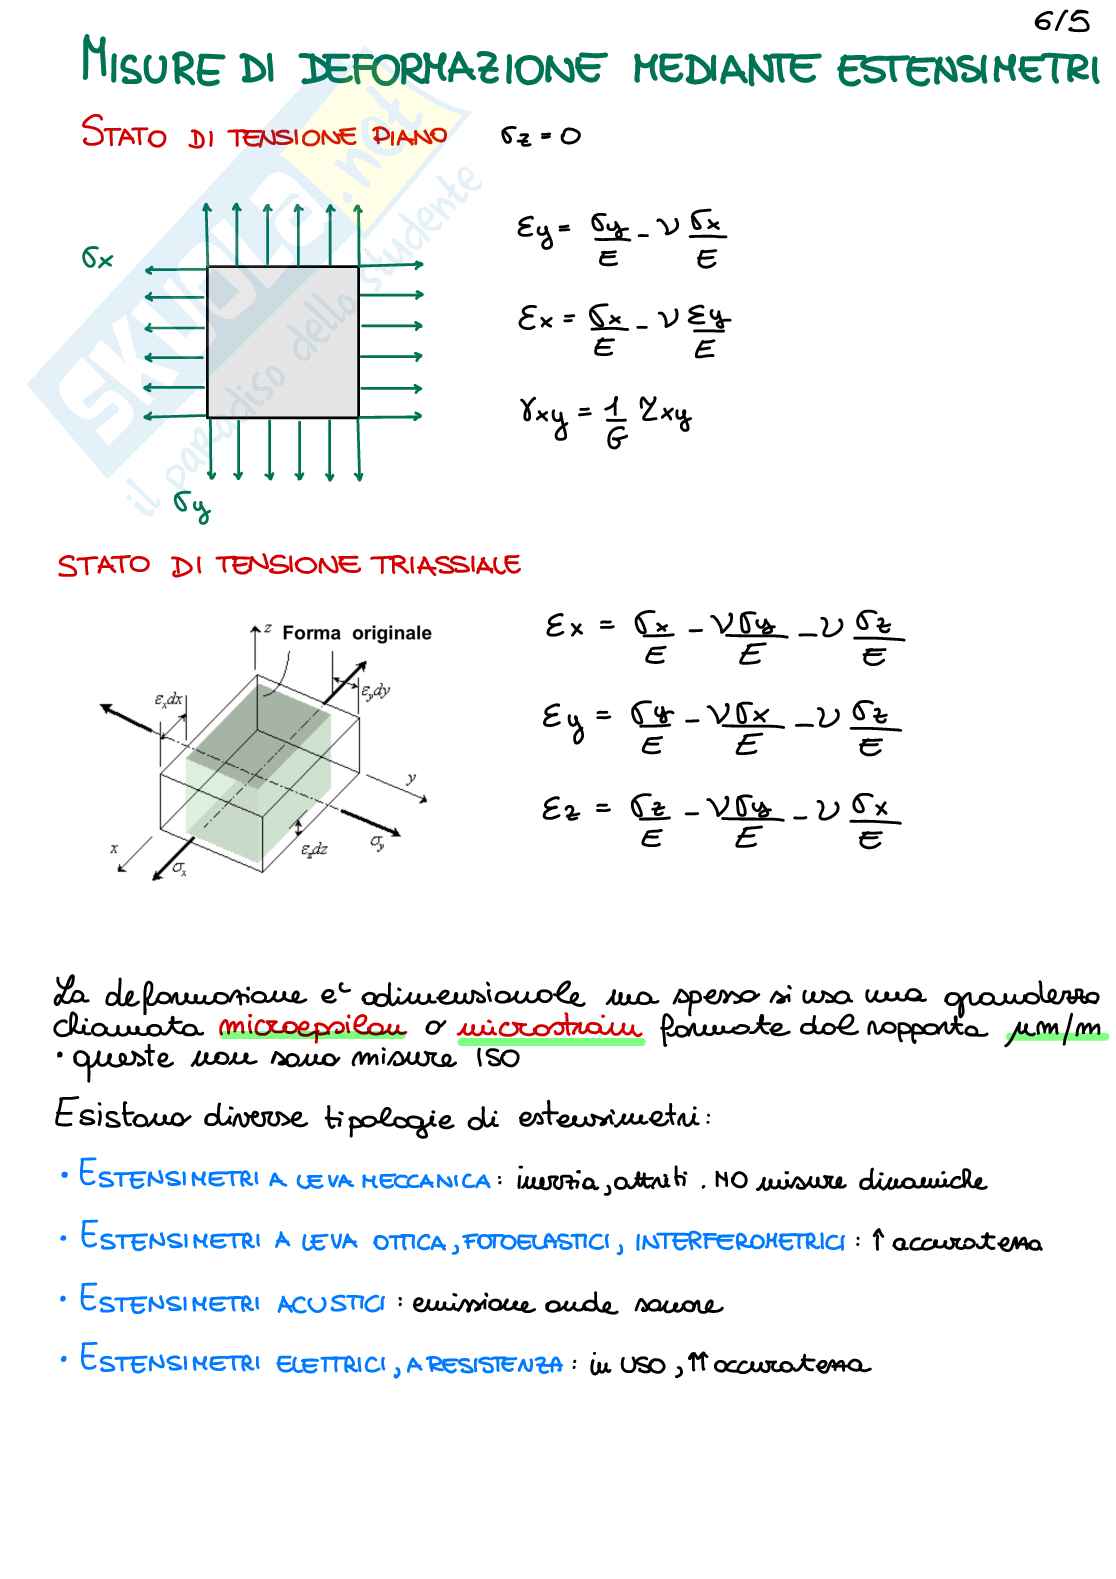 6/5
MISURE DI DEFORMAZIONE MEDIANTE ESTENSIMETRI
STATO DI TENSIONE PIANO σz = 0
σx
εy = σy/E - ν σx/E
εx = σx/E - ν εy/E
γxy = 1/G τxy
σy
SKUOLA.net
il paradiso dello studente
STATO DI TENSIONE TRIASSIALE
z Forma originale
εxdx
εydy
y
x
σx
εzdz
σy
εx = σx/E - νσy/E - ν σz/E
εy = σy/E - νσx/E - ν σz/E
εz = σz/E - νσy/E - ν σx/E
La deformazione e' adimensionale ma spesso si usa una grandezza
chiamata microepsilon o microstrain formate dal rapporto μm/m
• queste non sono misure ISO
Esistono diverse tipologie di estensimetri:
• ESTENSIMETRI A LEVA MECCANICA: inerzia, attriti. NO misure dinamiche
• ESTENSIMETRI A LEVA OTTICA, FOTOELASTICI, INTERFEROMETRICI: ↑ accuratezza
• ESTENSIMETRI ACUSTICI: emissione onde sonore
• ESTENSIMETRI ELETTRICI, A RESISTENZA: in USO, ↑↑ accuratezza